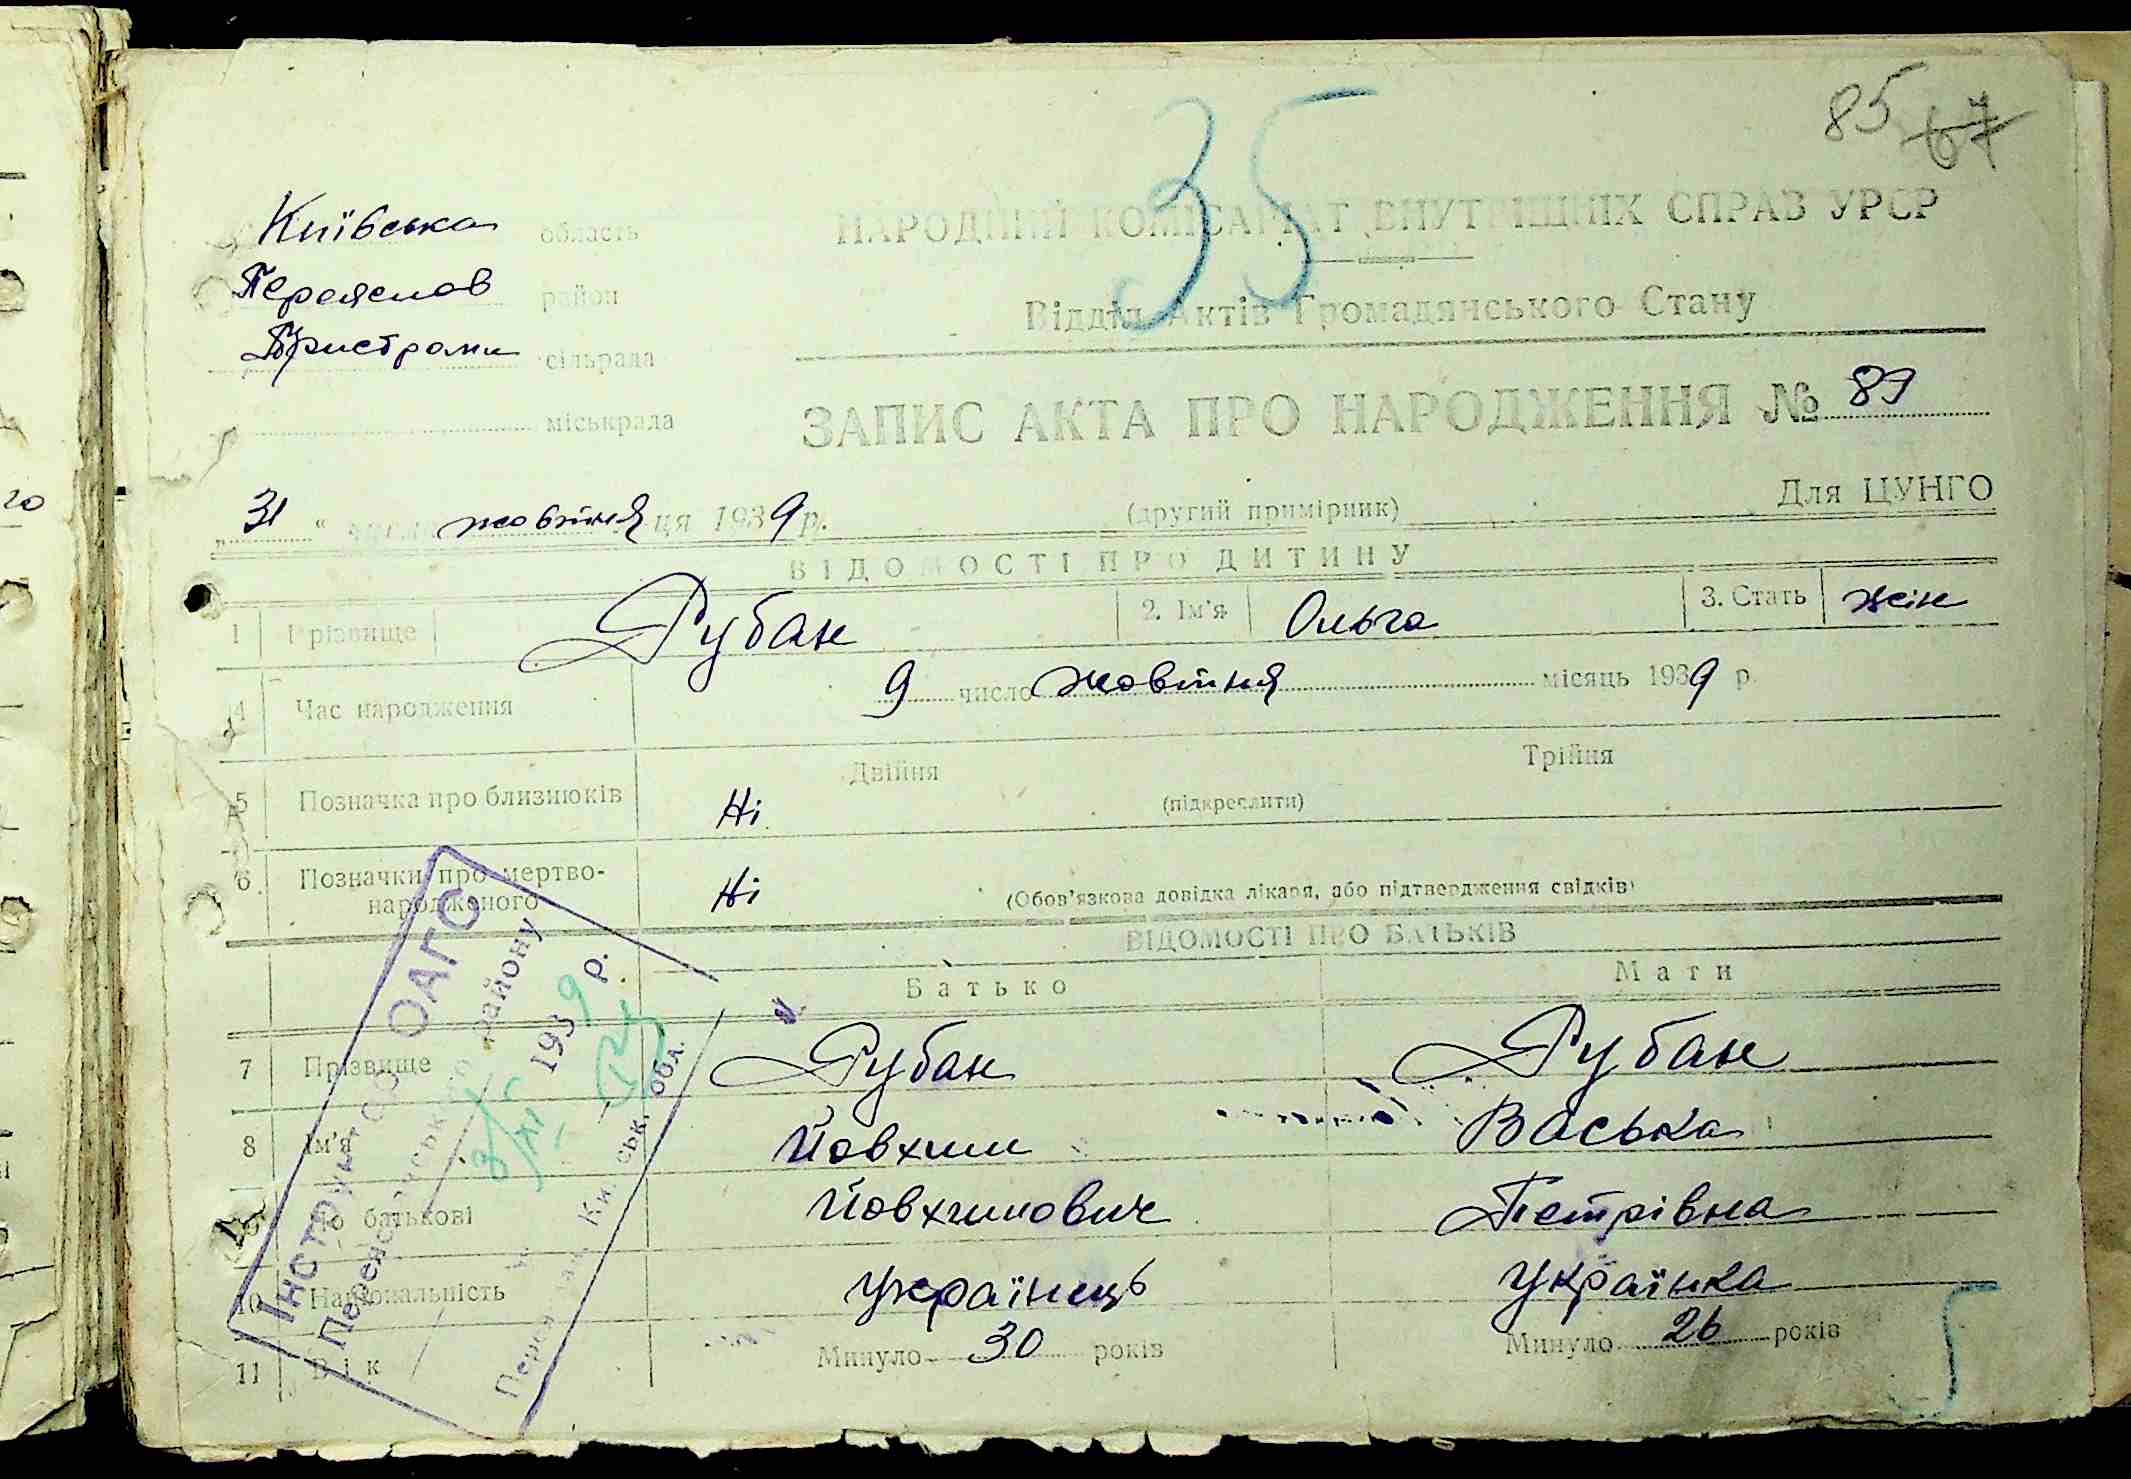 85 67
35
Київська область
НАРОДНІЙ КОМІСАРІАТ ВНУТРІШНІХ СПРАВ УРСР
Переяслав район
Відділ Актів Громадянського Стану
Пристроми сільрада
міськрада
ЗАПИС АКТА ПРО НАРОДЖЕННЯ № 89
Для ЦУНГО
„31“ числа жовтня ця 1939 р. (другий примірник)
ВІДОМОСТІ ПРО ДИТИНУ
1 Прізвище Рубан 2. Ім'я Ольга 3. Стать жін
4 Час народження 9 число жовтня місяць 1939 р.
5 Позначка про близнюків Ні Двійня (підкреслити) Трійня
6. Позначки про мертво-
народженого Ні (Обов'язкова довідка лікаря, або підтвердження свідків)
ВІДОМОСТІ ПРО БАТЬКІВ
Батько Мати
7 Прізвище Рубан Рубан
8 Ім'я Йовхим Васька
9 По батькові Йовхимович Петрівна
10 Національність Українець Українка
11 Вік Минуло 30 років Минуло 26 років
Інструктор ОАГС
району
1939 р.
обл.